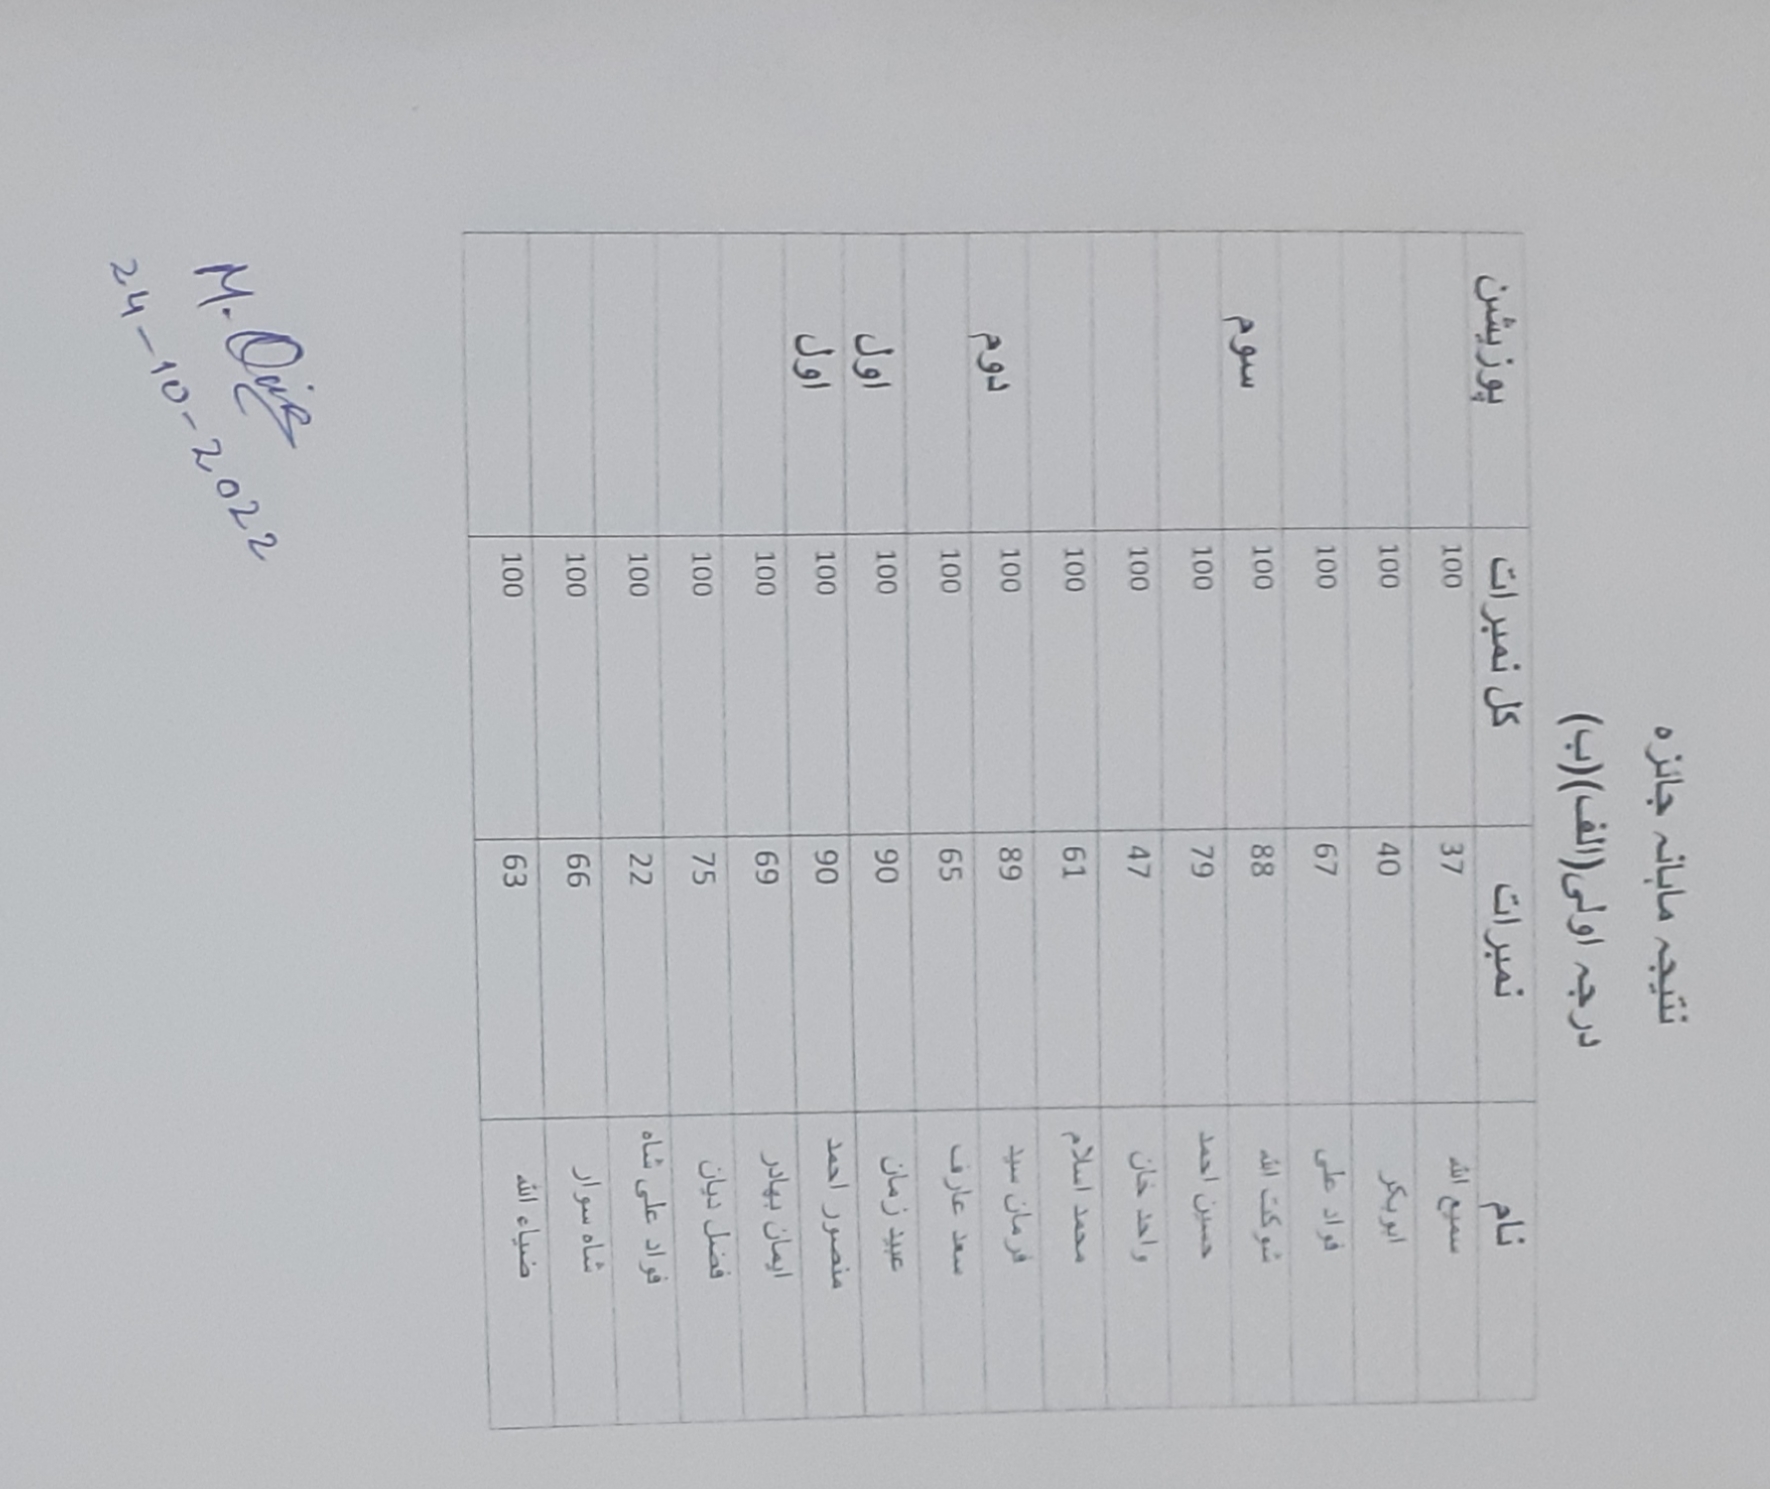 نتیجہ ماہانہ جائزہ
درجہ اولی(الف)(ب)
نام نمبرات کل نمبرات پوزیشن
سمیع اللہ 37 100
ابوبکر 40 100
فواد علی 67 100
شوکت اللہ 88 100 سوم
حسین احمد 79 100
واحد خان 47 100
محمد اسلام 61 100
فرمان سید 89 100 دوم
سعد عارف 65 100
عبید زمان 90 100 اول
منصور احمد 90 100 اول
ایمان بہادر 69 100
فضل دیان 75 100
فواد علی شاہ 22 100
شاہ سوار 66 100
ضیاء اللہ 63 100
M.
24-10-2022